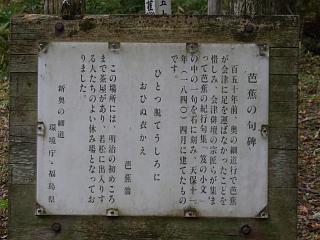 芭蕉の句碑
百五十年前、奥の細道行で芭蕉
が会津に足を運ばなかったことを
惜しみ、会津俳壇の宗匠らが集ま
って芭蕉の紀行句集「笈の小文」
の中の一句を石に刻み、天保十一
年(一八四〇)四月に建てたもの
です。
ひとつ脱てうしろに
おひぬ衣かえ
芭蕉翁
この場所には、明治の初めころ
まで茶屋があり、若松に出入りす
るひとたちのよい休み場となってお
りました。
新奥の細道
環境庁・福島県